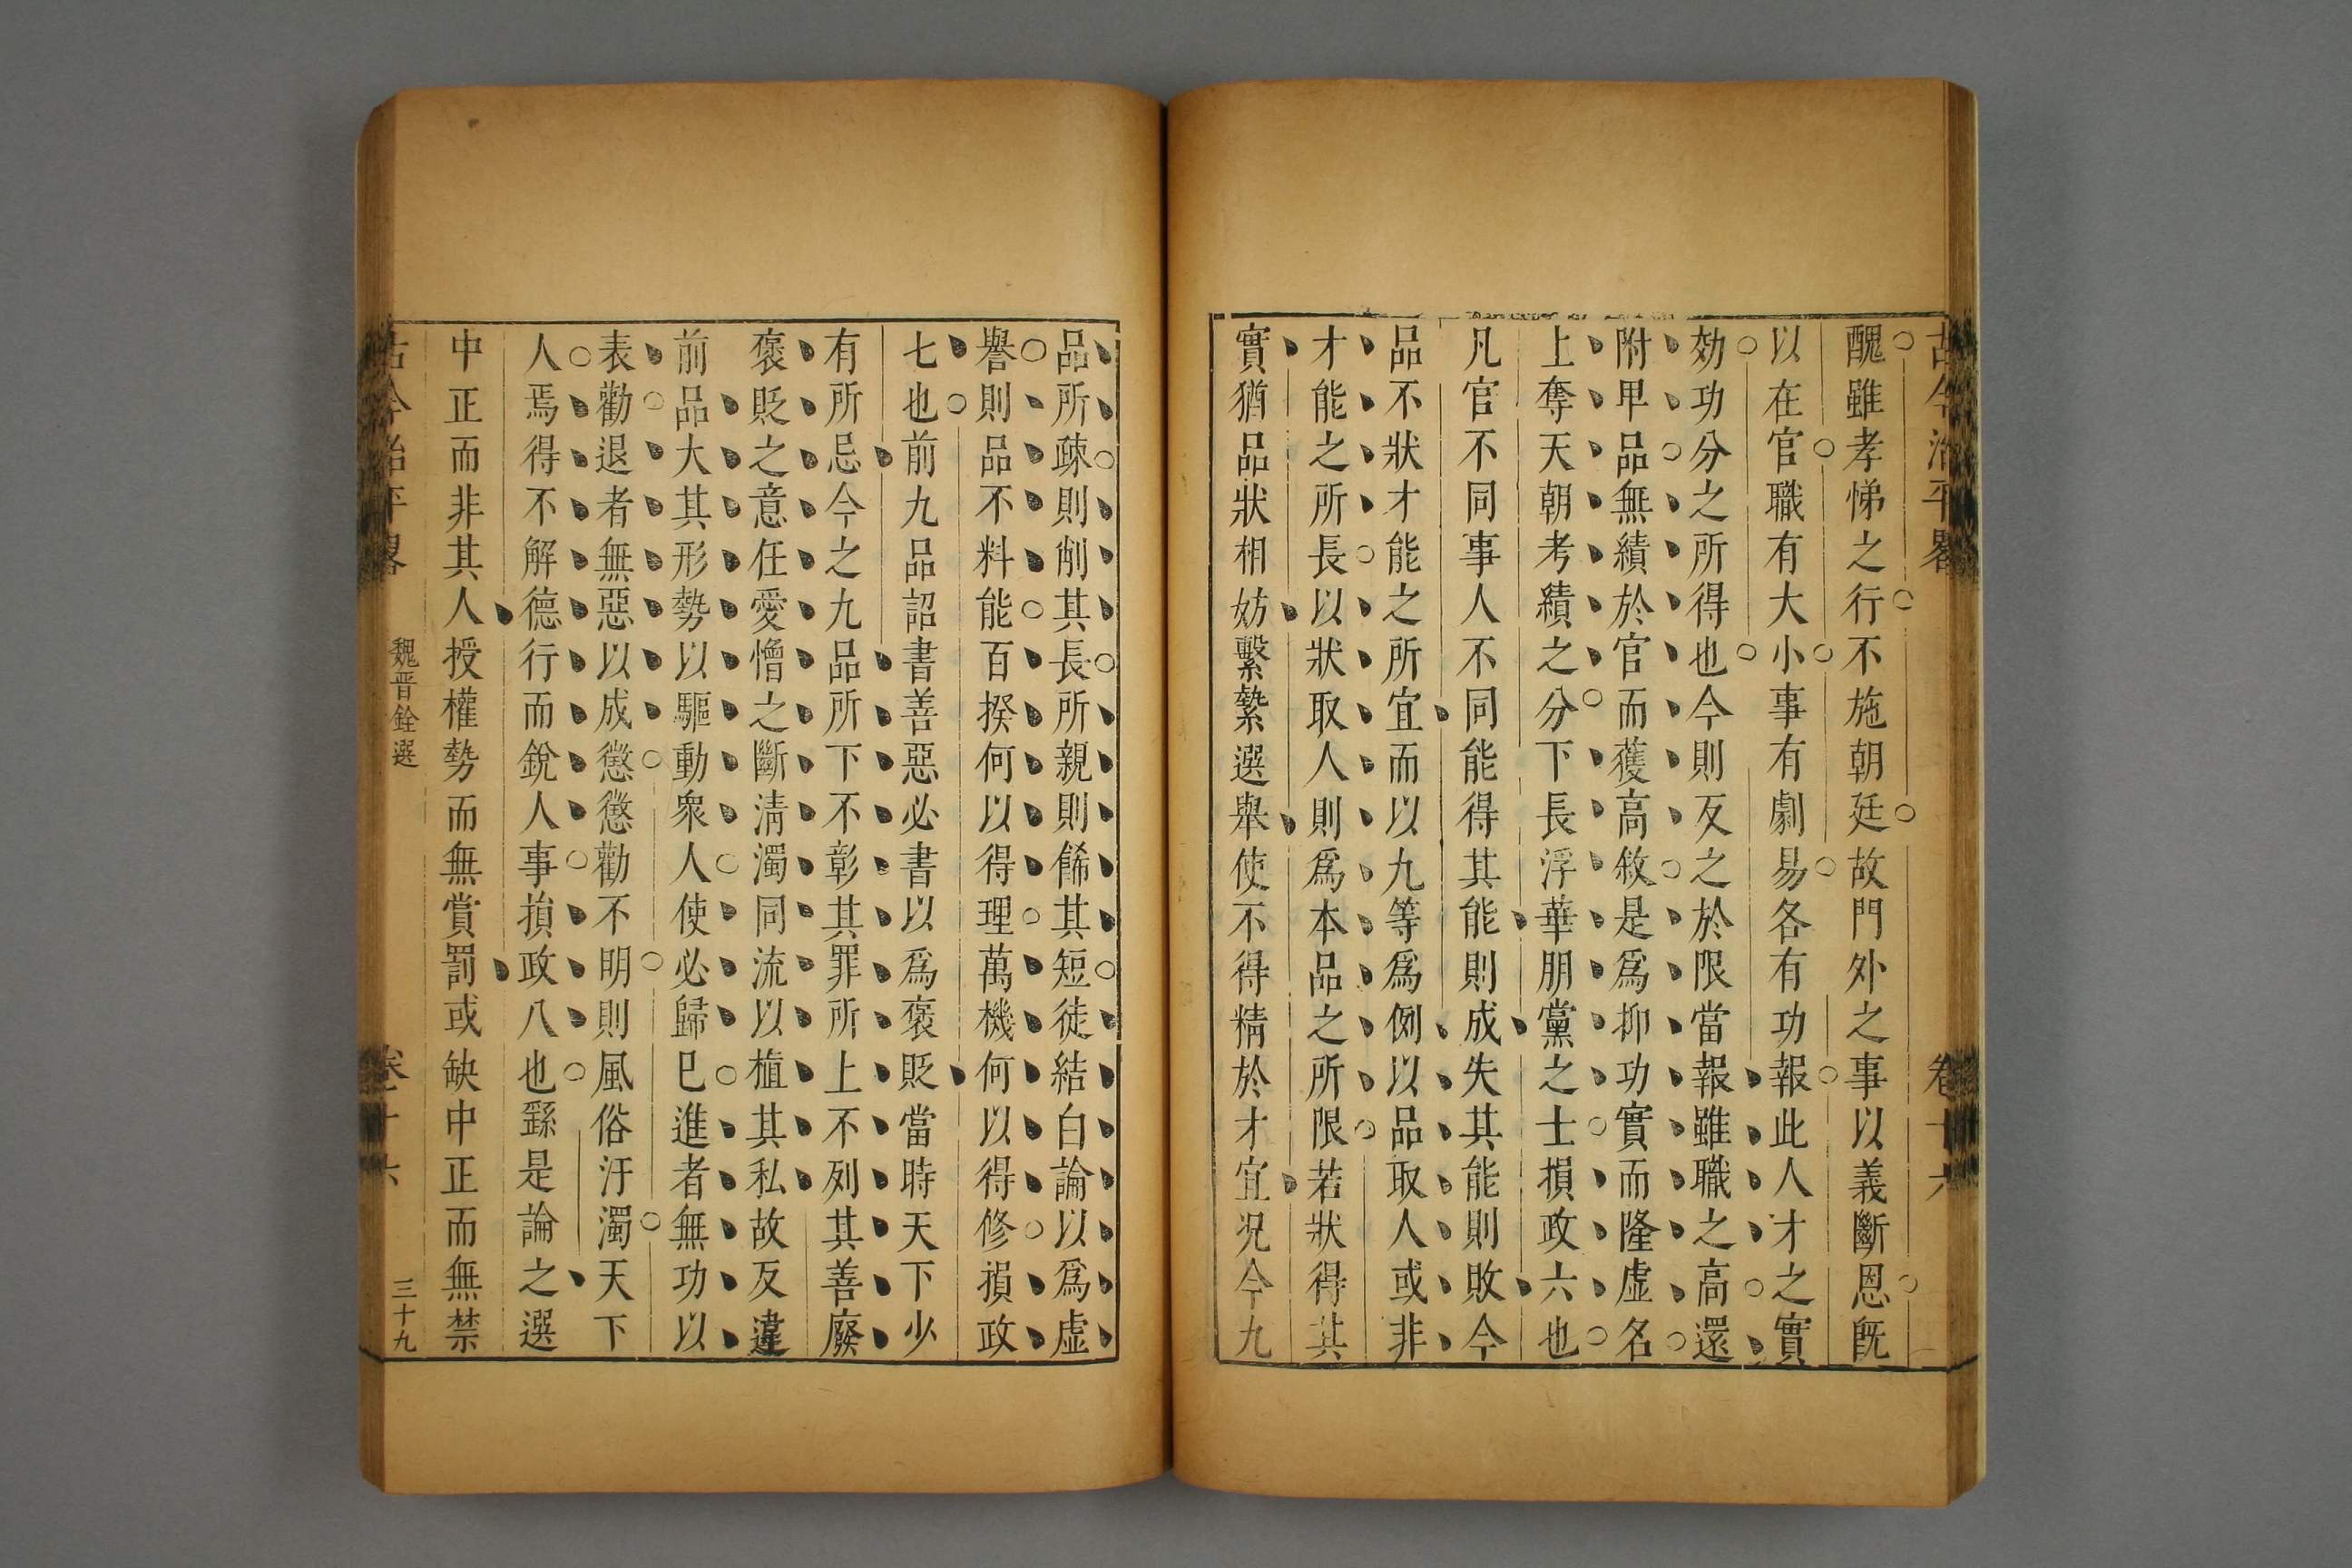 古今治平畧 卷十六
醜雖孝悌之行不施朝廷故門外之事以義斷恩旣
以在官職有大小事有劇易各有功報此人才之實
効功分之所得也今則反之於限當報雖職之高還
附甲品無績於官而獲高敘是爲抑功實而隆虛名
上奪天朝考績之分下長浮華朋黨之士損政六也
凡官不同事人不同能得其能則成失其能則敗今
品不狀才能之所宜而以九等爲例以品取人或非
才能之所長以狀取人則爲本品之所限若狀得其
實猶品狀相妨繫縶選舉使不得精於才宜况今九
品所疎則削其長所親則餙其短徒結白論以爲虛
譽則品不料能百揆何以得理萬機何以得修損政
七也前九品詔書善惡必書以爲褒貶當時天下少
有所忌今之九品所下不彰其罪所上不列其善廢
褒貶之意任愛憎之斷淸濁同流以植其私故反違
前品大其形勢以驅動衆人使必歸巳進者無功以
表勸退者無惡以成懲懲勸不明則風俗汙濁天下
人焉得不解德行而銳人事損政八也繇是論之選
中正而非其人授權勢而無賞罰或缺中正而無禁
古今治平畧 魏晋銓選 卷十六 三十九